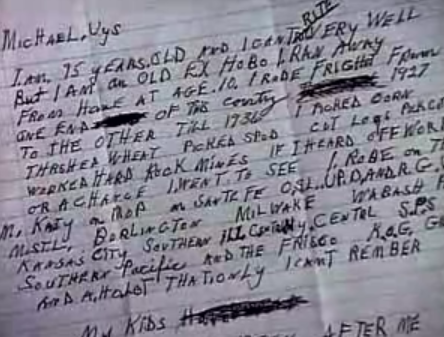 MICHAEL, Uys
RITE
I am 75 YEARS. OLD AND I CANT VERY WELL
BUT I AM an OLD EX HOBO I RAN AWAY
FROM HOME AT AGE. 10. I RODE FRIGHT From
ONE END OF THIS Contry 1927
TO THE OTHER TILL 1936 I PICKED CORN
THRSHED WHEAT PICKED SPUD CUT LOGS
WORKED HARD ROCK MINES IF I HEARD OFF WORK
OR A CHANGE I WENT TO SEE I RODE on TH
M, KATY m MOP m SANTE FE O.S.L. U.P. D, AND R.G.
MSTL, BORLINGTON MILWAKE WABASH
KANSAS CITY SOUTHERN ILL CENTEL S.P.S
SOUTHERN Pacific AND THE FRISCO K.O.G, G
AND A, HOLOT THAT ONLY I CANT REMBER
MY KIDS
AFTER ME